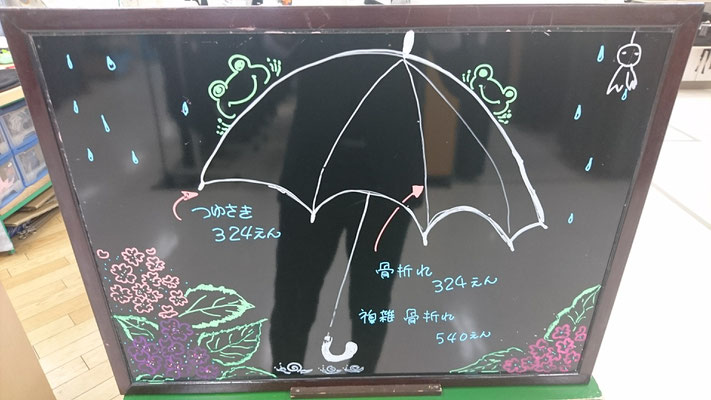 つゆさき
324えん
骨折れ
324えん
複雑骨折れ
540えん